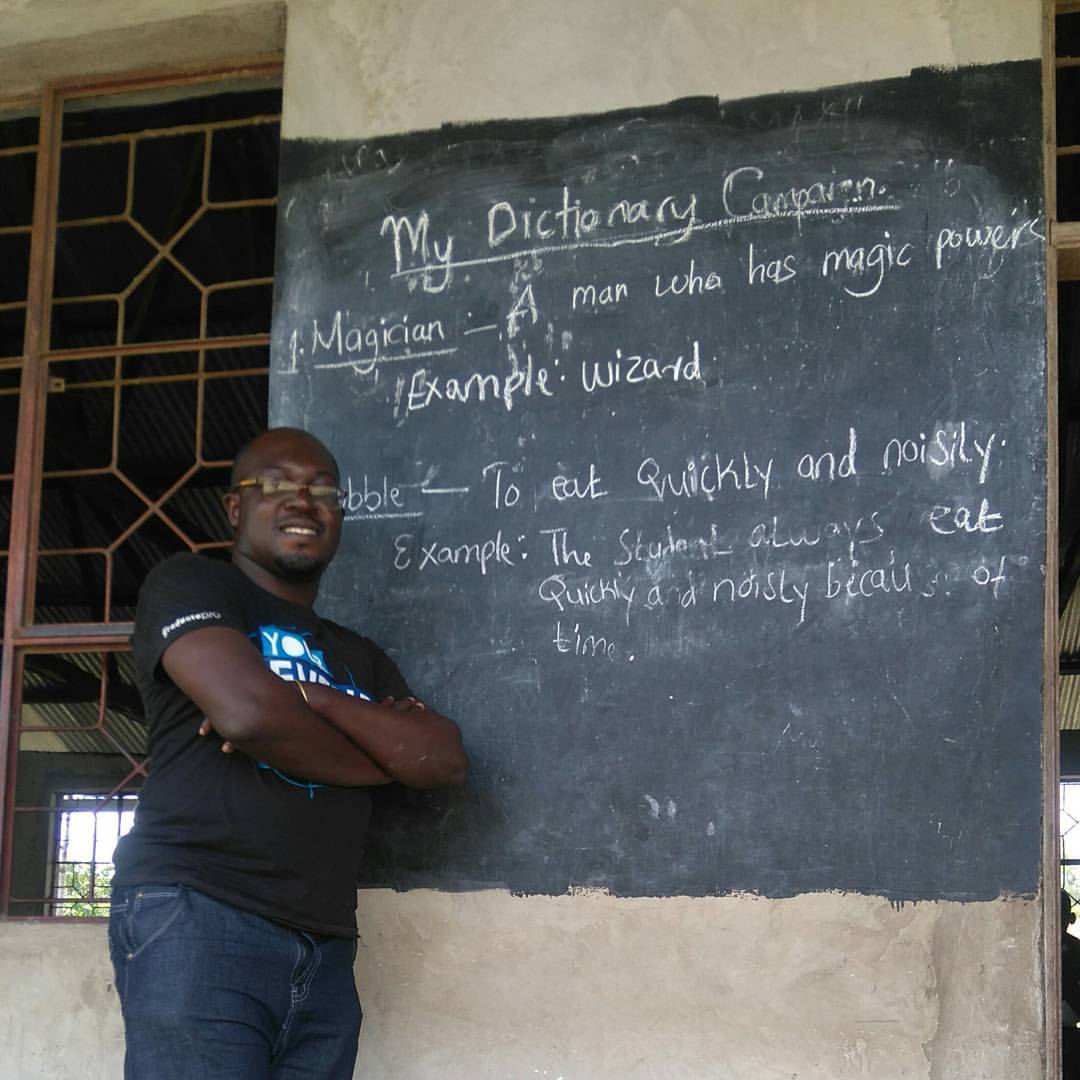 My Dictionary Campaign.
1. Magician – A man who has magic powers
Example: wizard
bble — To eat Quickly and noisily.
Example: The Student always eat
Quickly and noisly because of
time.
YOU